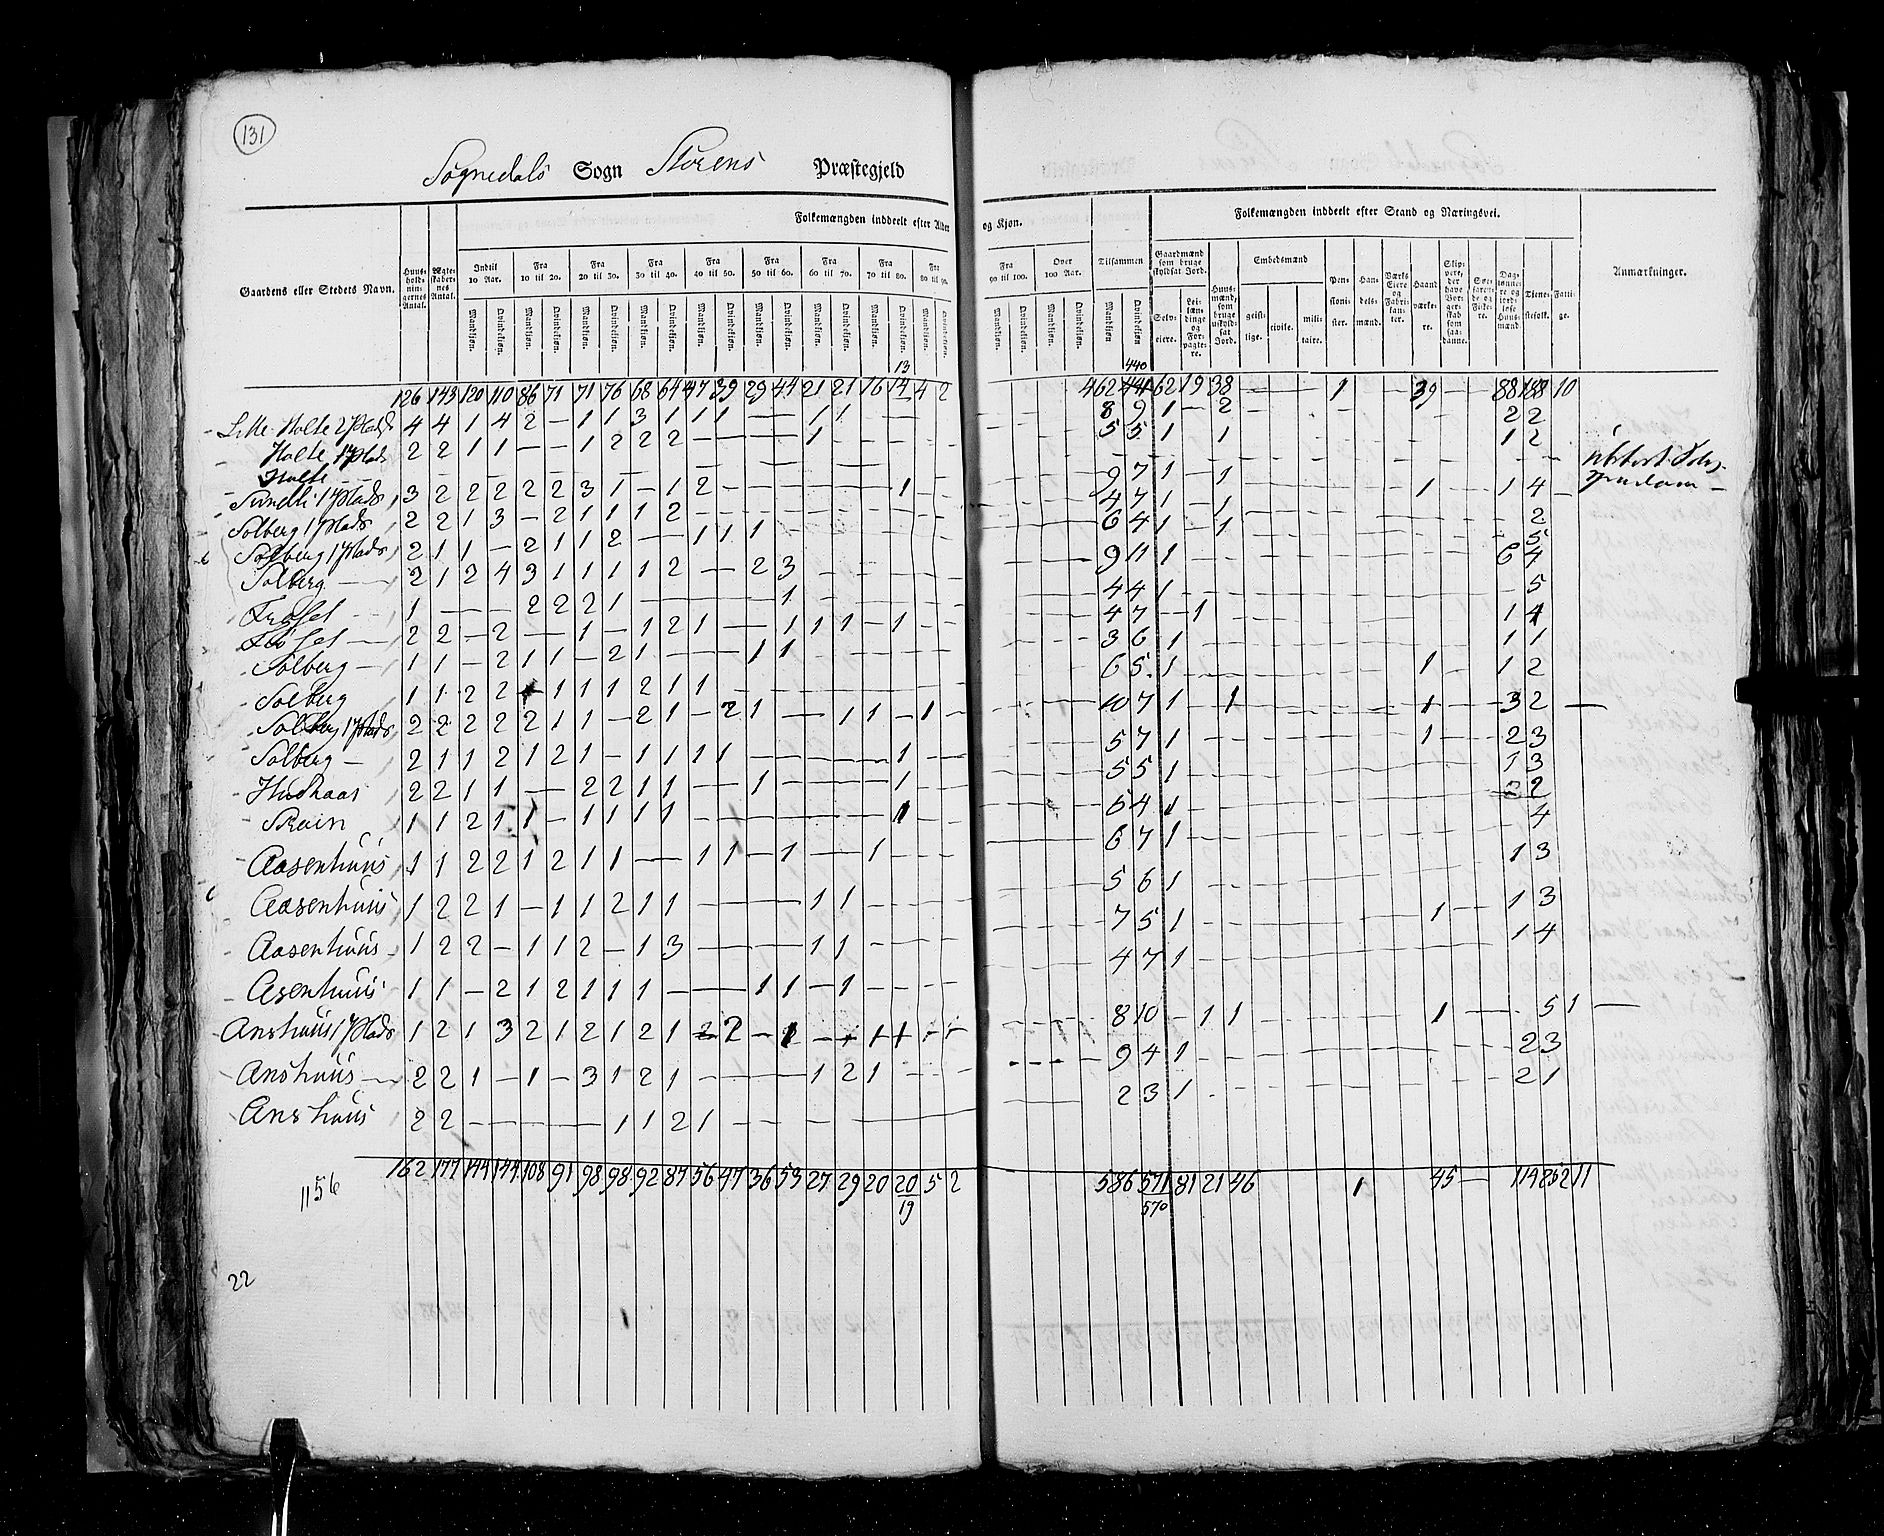 131
Sognedals Sogn Störens Præstegjeld
Folkemængden inddeelt efter Alder og Kjøn.
Folkemængden inddeelt efter Stand og Næringsvei.
Gaardens eller Stedets Navn.
Huusholdningernes Antal.
Ægteskabernes Antal.
Indtil 10 Aar.
Fra 10 til 20.
Fra 20 til 30.
Fra 30 til 40.
Fra 40 til 50.
Fra 50 til 60.
Fra 60 til 70.
Fra 70 til 80.
Fra 80 til 90.
Fra 90 til 100.
Over 100 Aar.
Tilsammen
Mandkjøn. Qvindekjøn.
Gaardmænd som bruge skyldsat Jord.
Selveiere.
Leilændinge og Forpagtere.
Huusmænd, som bruge uskyldsat Jord.
Embedsmænd
geistlige. civile. militaire.
Pensionister.
Handelsmænd.
Værks Eiere og Fabrikanter.
Haandværkere.
Søefarende og Fiskere.
Daglønnere og jordløse Huusmænd.
Tjenestefolk.
Fattige.
Anmærkninger.
13 440
126 143 120 110 86 71 71 76 68 64 47 39 29 44 21 21 16 14 4 2 462 441 62 19 38 — — 1 39 — 88 188 10
Lille Holte 2 Plads 4 4 1 4 2 — 1 1 3 1 1 1 — — 1 1 8 9 1 — 2 2 2
Holte 1 Plads 2 2 1 1 — — 1 2 2 2 — — — — 1 5 5 1 1 1 2
Holte
3 2 2 2 2 2 3 1 — 1 2 1 9 7 1 — 1 1 1 4
Solberg 1 Plads 2 2 1 3 — 2 1 1 1 2 4 7 1 — 1 2
Solberg 1 Plads 2 1 1 — 2 1 1 2 — — 1 1 1 6 4 1 — 1 5
Solberg 2 1 2 4 3 1 1 1 1 2 — — 2 3 9 11 1 6 4
1 — — — 2 2 2 1 1 4 4 1 5
2 2 — 2 — — 1 — 1 2 1 — — 1 1 1 — 1 4 7 — 1 1 4
Solberg 1 1 — 2 1 1 — 2 1 — — — 1 1 3 6 1 1 1
Solberg 1 1 2 2 1 1 1 2 1 1 6 5 1 1 1 2
Solberg 1 Plads 2 2 2 2 2 1 1 — 2 1 — 2 1 — — 1 1 — 1 10 7 1 — 1 1 3 2
Solberg 2 1 1 2 1 2 1 — 1 1 1 1 1 5 7 1 1 2 3
Hudhaas 2 2 1 1 — — 2 2 1 1 — — 1 1 5 5 1 1 3
1 1 2 1 1 — 1 1 1 1 1 4
Aasenhuus 1 1 2 2 1 2 1 1 — — 1 1 — 1 — — 1 6 7 1 1 3
Aasenhuus 1 2 2 1 — 1 1 2 1 1 — — — — 1 1 5 6 1 1 3
Aasenhuus 1 2 2 — 1 1 2 — 1 3 — — — — 1 1 7 5 1 1 1 4
Asenhuus 1 1 — 2 1 2 1 1 1 — — — 1 1 — 1 4 7 1
Anshuus 1 Plads 1 2 1 3 2 1 2 1 2 1 8 10 — 1 1 1 5 1
Anshuus 2 2 1 — 1 — 3 1 2 1 — — — — 1 2 1 9 4 1 2 3
Anshuus 2 2 — — — — — 1 1 2 1 2 3 1 2 1
162 177 144 144 108 91 98 98 92 87 56 47 36 53 27 29 20 20 5 2 586 571 81 21 46 1 45 — 114 252 11
19 570
1156
22